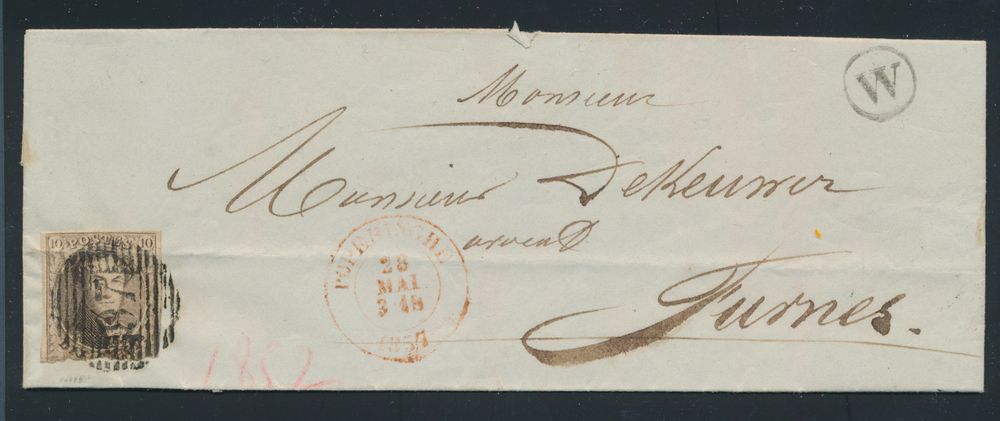 W
Monsieur
Monsieur DeKeuwer
avocat
Furnes.
10 POSTES 10
POPERINGHE
28
MAI
3-4S
1852